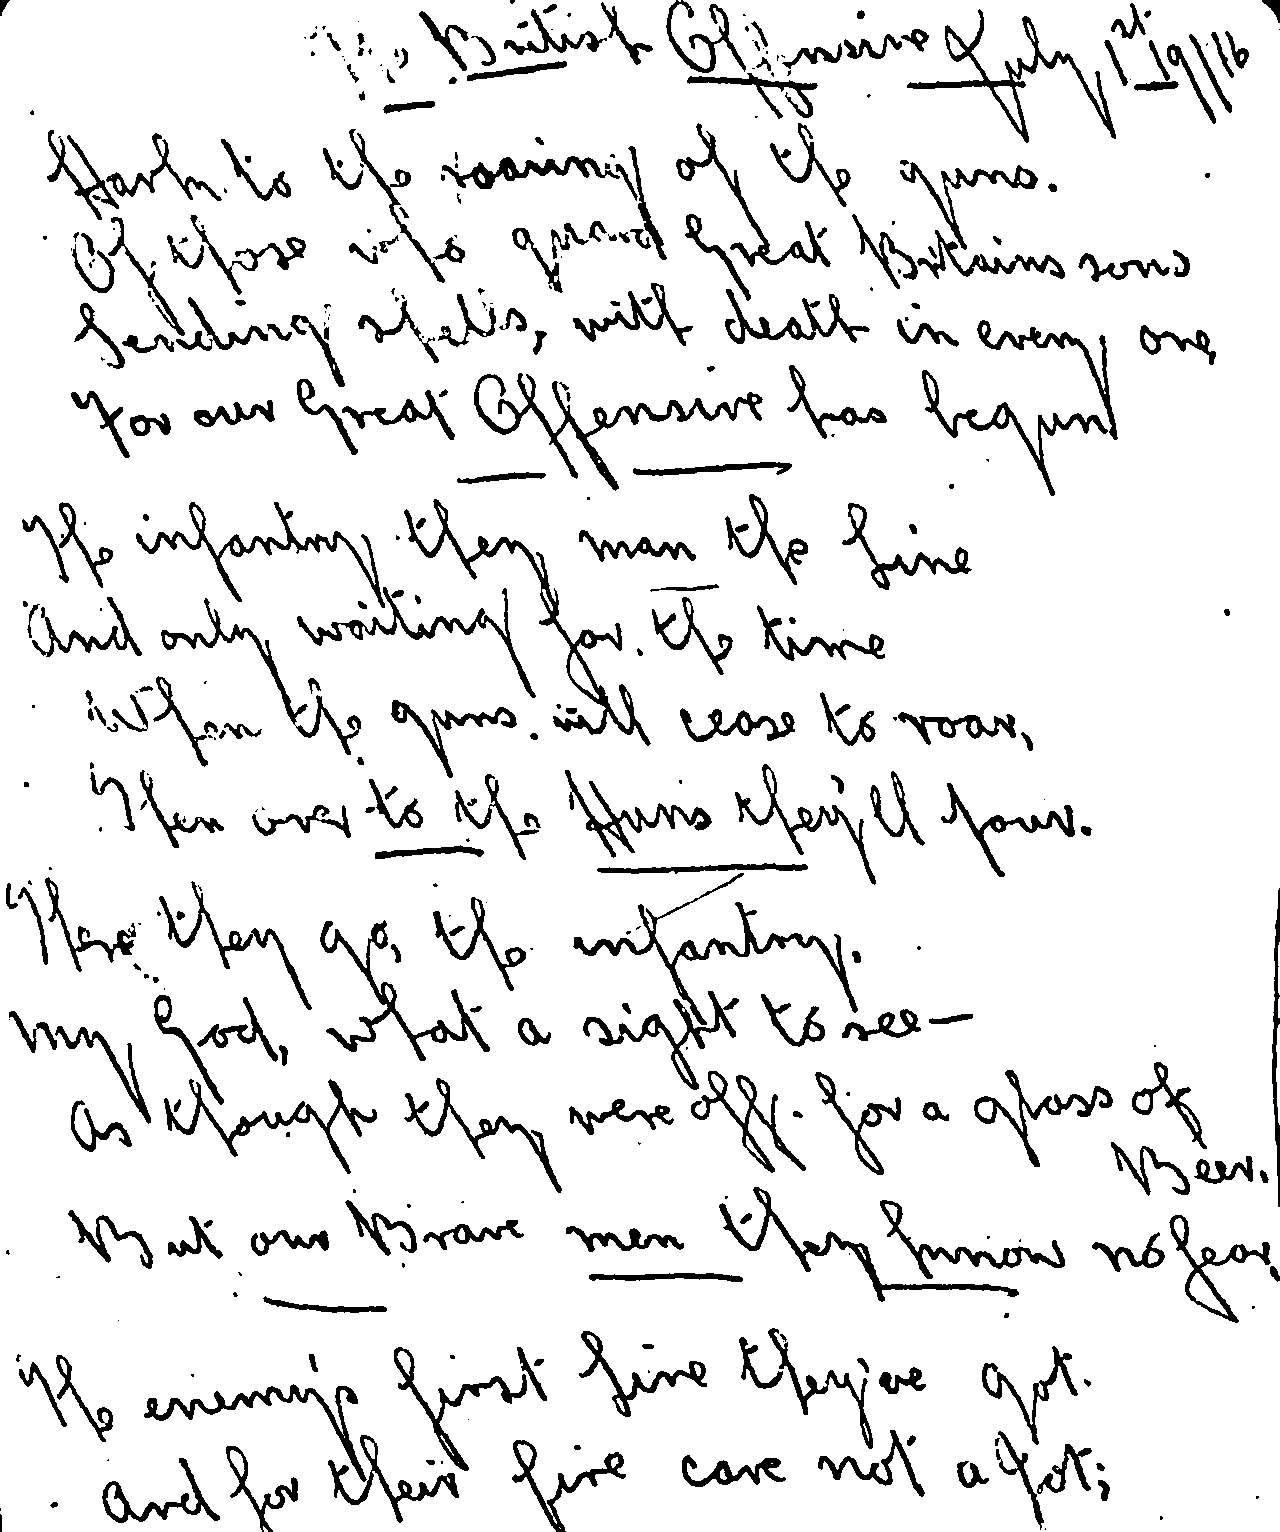 The British Offensive July 1st 1916
Hark to the roaring of the guns.
Of those who guard Great Britains sons
Sending shells, with death in every one,
For our Great Offensive has begun.
The infantry they man the line
And only waiting for the time
When the guns will cease to roar,
Then over to the Huns they'll pour.
There they go, the infantry.
My God, what a sight to see—
As though they were off. for a glass of
Beer.
But our Brave men they know no fear.
The enemy's first line they've got.
And for their fire care not a jot;